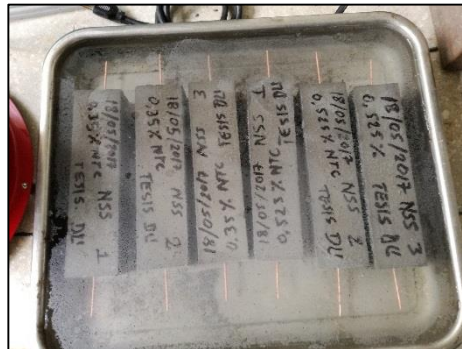 18/05/2017 NSS 1
0,35% NTC
TESIS DU
18/05/2017 NSS 2
0,35% NTC
TESIS DU
18/05/2017 NSS 3
0.35% NTC TESIS DU
18/05/2017 NSS 1
0,525% NTC TESIS DU
18/05/2017 NSS 2
0,525% NTC TESIS DU
18/05/2017 NSS 3
0,525% TESIS DU